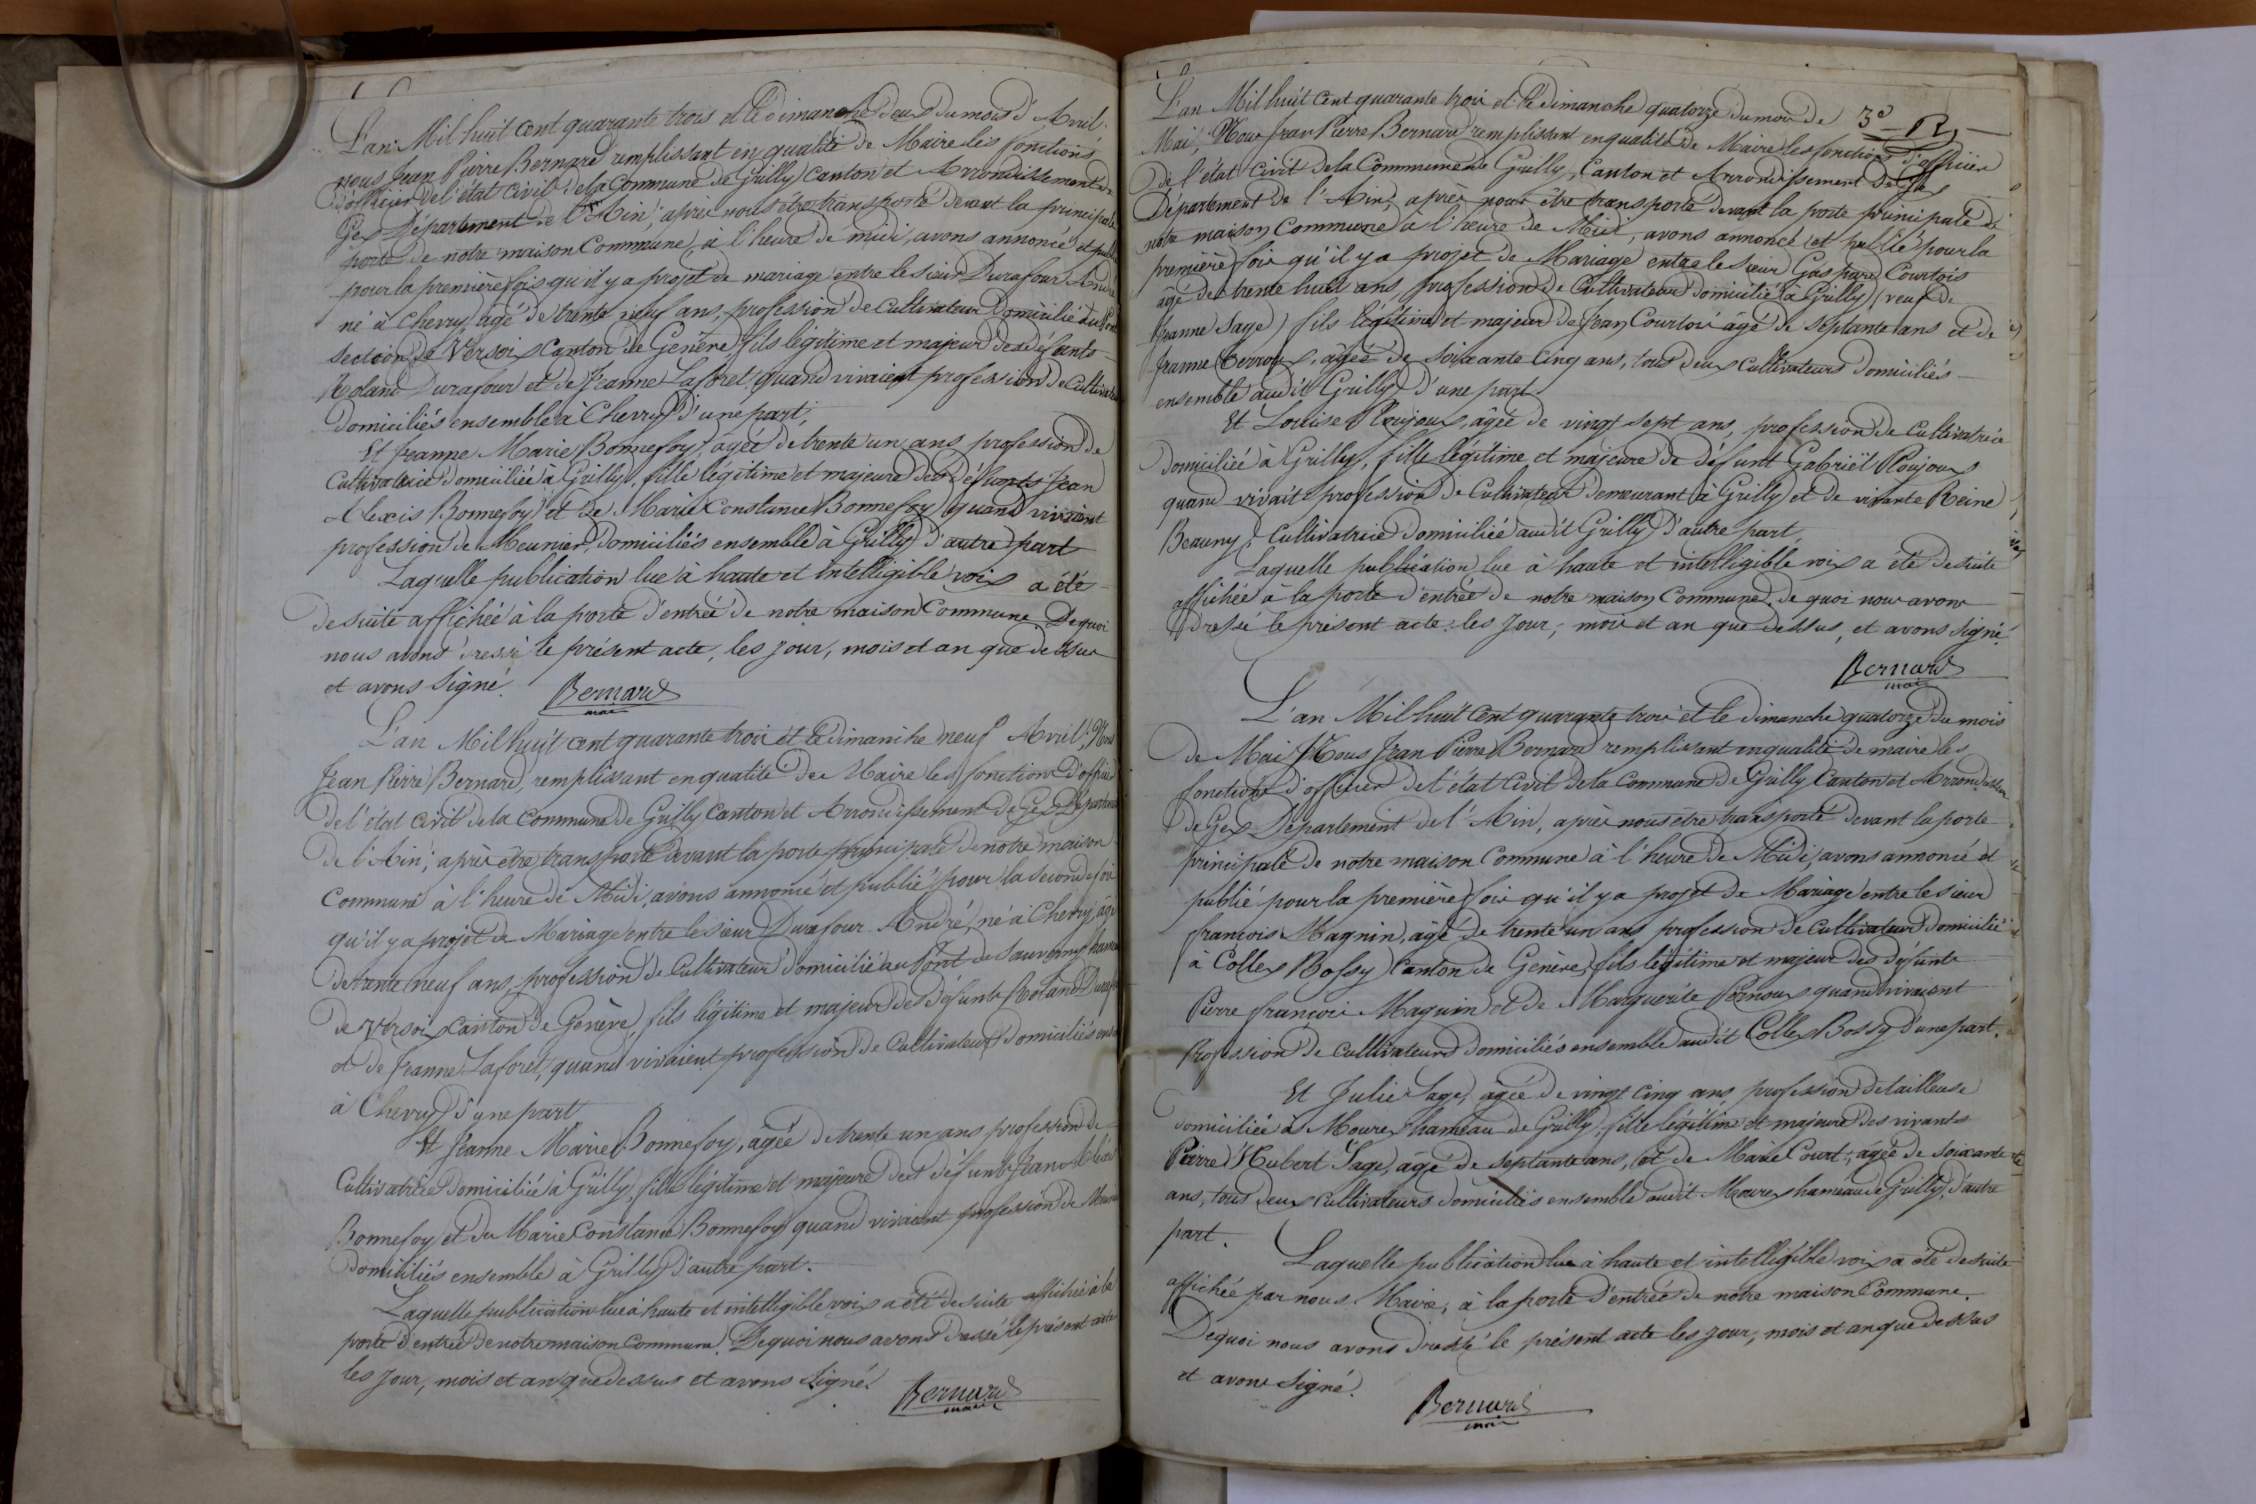 L'an Mil huit cent quarante trois et le dimanche deux du mois d'Avril
nous Jean Pierre Bernard remplissant en qualité de Maire les fonctions
d'officier de l'état civil de la Commune de Grilly Canton et Arrondissement de
Gex Département de l'Ain; après nous être transporté devant la principale
porte de notre maison Commune, à l'heure de midi, avons annoncé et publié
pour la première fois qu'il y a projet de mariage entre le sieur Durafour André
né à Chevry, âgé de trente neuf ans, profession de cultivateur Domicilié au
section de Versoix Canton de Genève fils légitime et majeur des défunts
Roland Durafour et de Jeanne Laforet, quand vivaient profession de Cultivateurs
domiciliés ensemble à Chevry d'une part;
Et Jeanne Marie Bonnefoy, agée de trente un ans profession de
Cultivatrice Domiciliée à Grilly, fille légitime et majeure des défunts Jean
Alexis Bonnefoy et de Marie Constance Bonnefoy quand vivaient
profession de Meunier, Domiciliés ensemble à Grilly d'autre part
Laquelle publication lue à haute et intelligible voix a été
de suite affichée à la porte d'entrée de notre maison Commune De quoi
nous avons dressé le présent acte, les jour, mois et an que dessus
et avons signé. Bernard
maire
L'an Mil huit cent quarante trois et le dimanche neuf Avril. Nous
Jean Pierre Bernard, remplissant en qualité de Maire les fonctions d'officier
de l'état civil de la Commune de Grilly Canton et Arrondissement de Gex Département
de l'Ain; après être transporté devant la porte principale de notre maison
Commune à l'heure de Midi, avons annoncé et publié pour la seconde fois
qu'il y a projet de Mariage entre le sieur Durafour André, né à Chevry, âgé
de trente neuf ans, profession de Cultivateur domicilié au Pont de Sauverny hameau
de Versoix Canton de Genève, fils légitime et majeur des défunts Roland Durafour
et de Jeanne Laforet, quand vivaient profession de Cultivateurs Domiciliés ensemble
à Chevry d'une part
Et Jeanne Marie Bonnefoy, agée de trente un ans profession de
Cultivatrice Domiciliée à Grilly, fille légitime et majeure des défunts Jean Alexis
Bonnefoy et de Marie Constance Bonnefoy quand vivaient profession de Meunier
Domiciliés ensemble à Grilly d'autre part.
Laquelle publication lue à haute et intelligible voix a été de suite affichée à la
porte d'entrée de notre maison Commune. De quoi nous avons dressé le présent acte
les jour, mois et an que dessus et avons signé. Bernard
maire
L'an Mil huit cent quarante trois et le dimanche quatorze du mois de 3e
Mai, Nous Jean Pierre Bernard remplissant en qualité de Maire les fonctions d'officier
de l'état civil de la Commune de Grilly, Canton et Arrondissement de Gex
Département de l'Ain, après nous être transporté devant la porte principale de
notre maison Commune à l'heure de Midi, avons annoncé et publié pour la
première fois qu'il y a projet de Mariage entre le sieur Gaspard Courtois
âgé de trente huit ans, profession de Cultivateur domicilié à Grilly (veuf de
Jeanne Sage) fils légitime et majeur de Jean Courtois âgé de septante ans et de
Jeanne Perroux, âgée de soixante cinq ans, tous deux cultivateurs domiciliés
ensemble audit Grilly d'une part
Et Louise Roujoux, âgée de vingt sept ans, profession de Cultivatrice
domiciliée à Grilly, fille légitime et majeure de défunt Gabriël Roujoux
quand vivait profession de Cultivateur demeurant à Grilly et de vivante Reine
Beauny, Cultivatrice domiciliée audit Grilly d'autre part,
Laquelle publication lue à haute et intelligible voix a été de suite
affichée à la porte d'entrée de notre maison Commune. de quoi nous avons
dressé le présent acte les jour, mois et an que dessus, et avons signé.
Bernard
maire
L'an Mil huit cent quarante trois et le dimanche quatorze du mois
de Mai Nous Jean Pierre Bernard remplissant en qualité de maire les
fonctions d'officier de l'état civil de la Commune de Grilly Canton et Arrondissement
de Gex Département de l'Ain, après nous être transporté devant la porte
principale de notre maison Commune à l'heure de Midi, avons annoncé et
publié pour la première fois qu'il y a projet de Mariage entre le sieur
François Magnin, âgé de trente un ans profession de Cultivateur domicilié
à Collex Bossy Canton de Genève, fils légitime et majeur des défunts
Pierre françois Magnin et de Marguerite Pernoux quand vivaient
Profession de cultivateurs domiciliés ensemble audit Collex Bossy d'une part.
Et Julie Sage, âgée de vingt cinq ans, profession de tailleuse
domiciliée à Mourex hameau de Grilly, fille légitime et majeure des vivants
Pierre Hubert Sage, âgé de septante ans, et de Marie Court, âgée de soixante
ans, tous deux cultivateurs domiciliés ensemble audit Mourex hameau de Grilly, d'autre
part.
Laquelle publication lue à haute et intelligible voix a été de suite
affichée par nous Maire, à la porte d'entrée de notre maison Commune.
De quoi nous avons dressé le présent acte les jour, mois et an que dessus
et avons signé. Bernard
maire